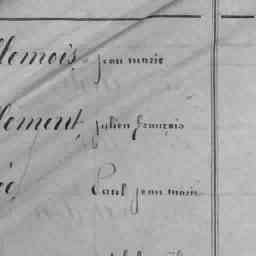 llemois, jean marie
lement, julien françois
Paul jean marie